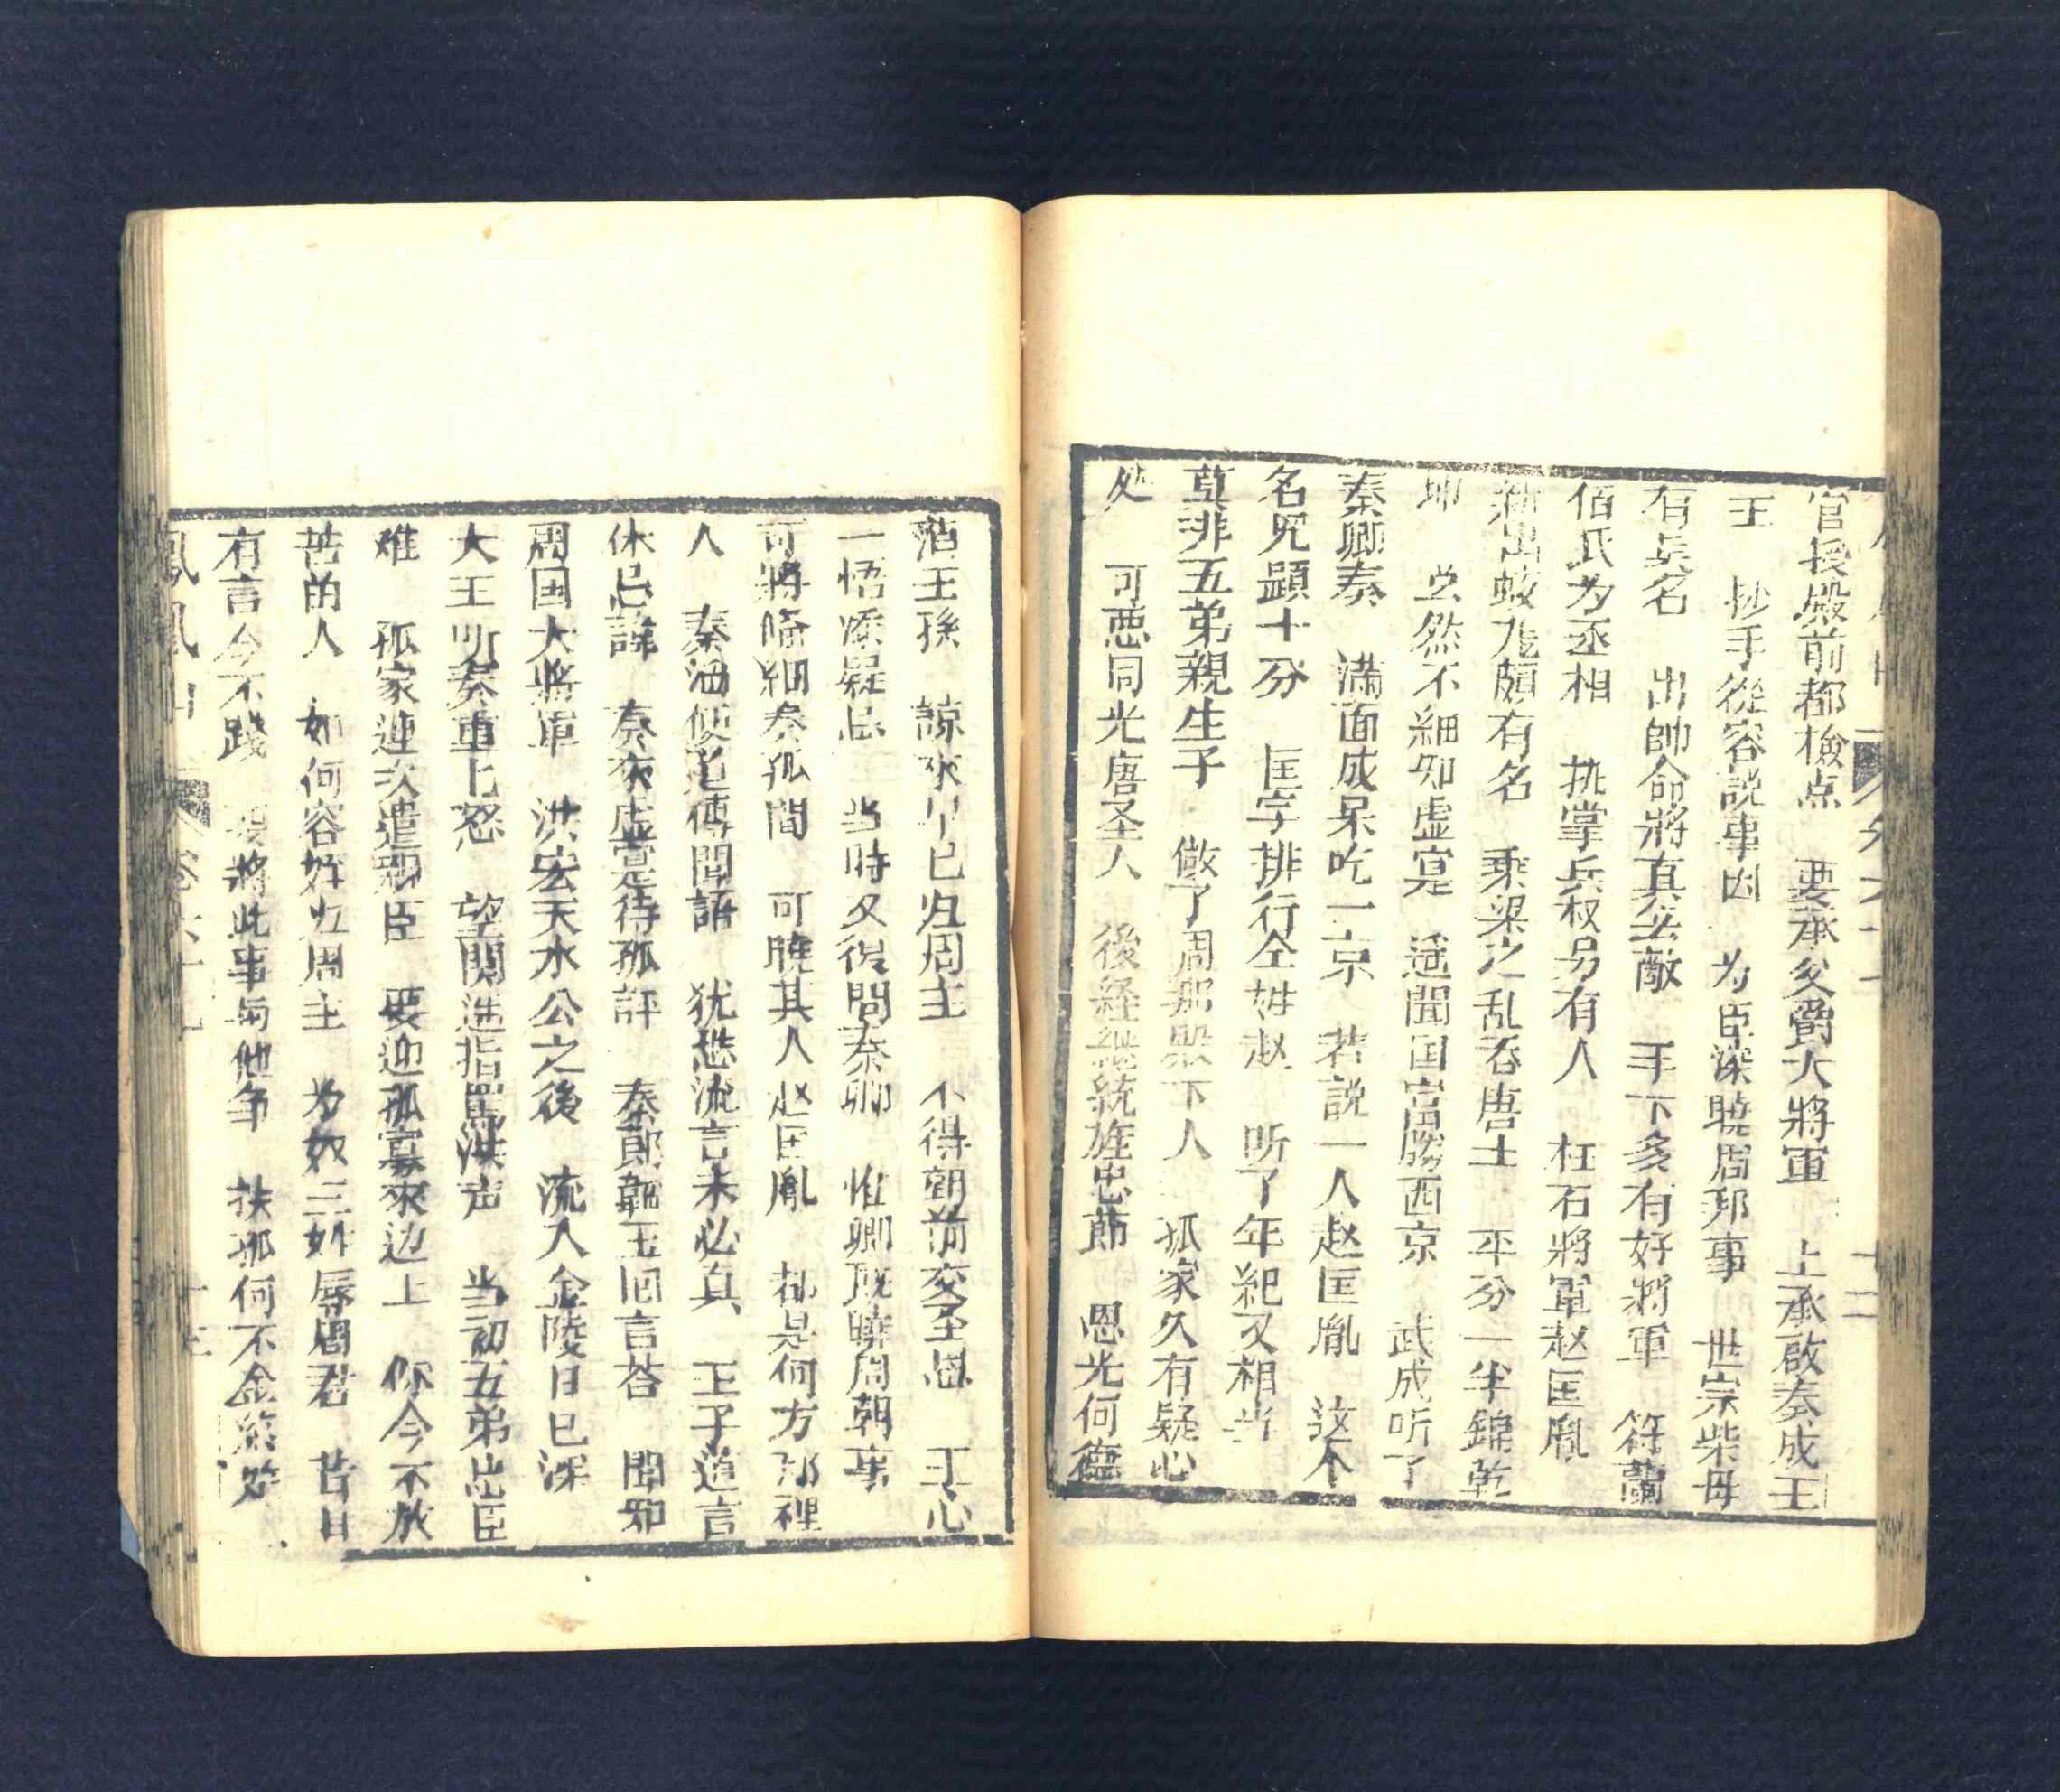 官授殿前都檢点　要承父爵大將軍　上承啟奏成王
王　抄手從容説事因　为臣深曉周邦事　世宗柴毋
有兵名　出帥命將真无敵　手下多有好將軍　符蘭
佰氏为丞相　執掌兵权另有人　枉石將軍赵匡胤
新出蛟龙頗有名　乘梁之乱吞唐土　平分一半錦乾
坤　虽然不細知虚寔　遥聞国富勝西京　武成听了
秦卿奏　滿面成呆吃一京　若説一人赵匡胤　这不
名児顕十分　匡字排行仝姓赵　听了年紀又相当
莫非五弟親生子　做了周邦殿下人　孤家久有疑心
处　可恶同光唐圣人　後経継統旌忠節　恩光何德
酒王孫　諒來早已归周主　不得朝前交圣恩　王心
一悟添疑忌　当時又復問秦卿　惟卿既曉周朝事
可將備細奏孤聞　可曉其人赵匡胤　都是何方那裡
人　秦油便道傳聞語　犹恐流言未必真　王子道言
休忌諱　奏來虚寔待孤評　秦郎聽王囬言荅　聞那
周国大將軍　洪宏天水公之後　流入金陵日已深
大王听奏重上怒　望闕遥指罵洪声　当初五弟出臣
难　孤家連次遣邪臣　要迎孤寡來边上　你今不放
苦苗人　如何容好归周主　为奴三姓辱周君　昔日
有言今不踐　要將此事与他争　扶那何不金
鳳凰山　卷六十七　十三